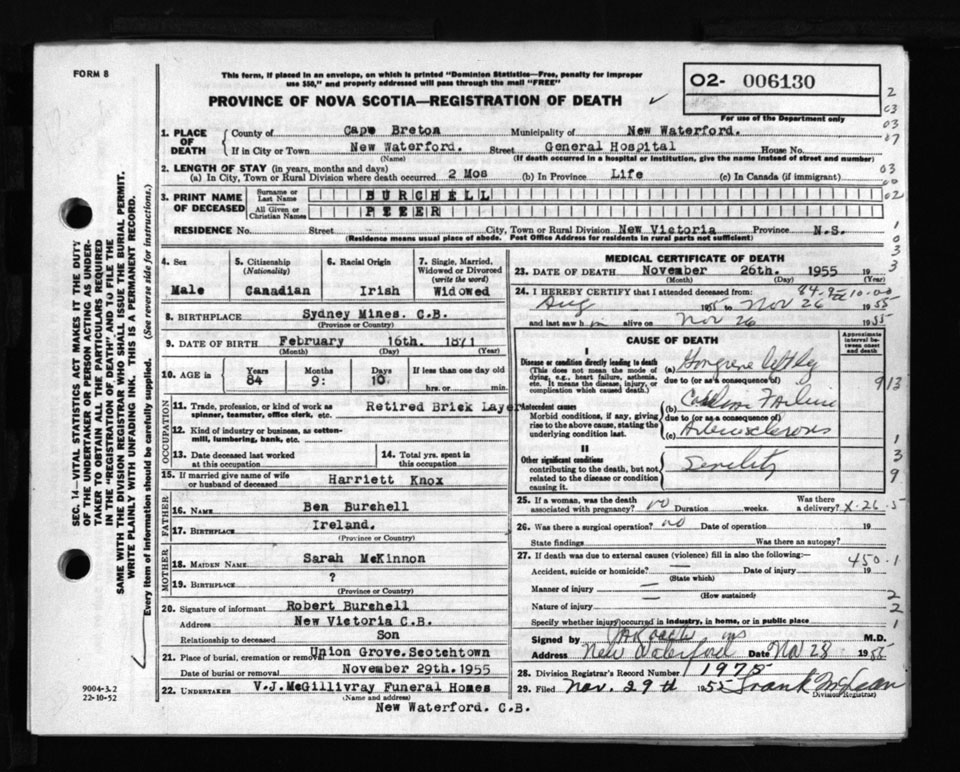 FORM 8
This form, if placed in an envelope, on which is printed "Dominion Statistics—Free, penalty for improper
use $50," and properly addressed will pass through the mail "FREE"
O2- 006130
For use of the Department only
PROVINCE OF NOVA SCOTIA—REGISTRATION OF DEATH
1. PLACE OF DEATH
County of Cape Breton Municipality of New Waterford.
If in City or Town New Waterford. Street General Hospital House No.
(Name) (If death occurred in a hospital or institution, give the name instead of street and number)
2. LENGTH OF STAY (in years, months and days)
(a) In City, Town or Rural Division where death occurred 2 Mos (b) In Province Life (c) In Canada (if immigrant)
3. PRINT NAME OF DECEASED
Surname or Last Name BURCHELL
All Given or Christian Names PETER
RESIDENCE No. Street City, Town or Rural Division New Victoria Province N.S.
(Residence means usual place of abode. Post Office Address for residents in rural parts not sufficient)
4. Sex Male
5. Citizenship (Nationality) Canadian
6. Racial Origin Irish
7. Single, Married, Widowed or Divorced (write the word) Widowed
8. BIRTHPLACE Sydney Mines. C.B.
(Province or Country)
9. DATE OF BIRTH February 16th. 1871
(Month) (Day) (Year)
10. AGE in Years 84 Months 9: Days 10. If less than one day old
hrs. or min.
OCCUPATION
11. Trade, profession, or kind of work as spinner, teamster, office clerk, etc. Retired Brick Layer
12. Kind of industry or business, as cotton-mill, lumbering, bank, etc.
13. Date deceased last worked at this occupation
14. Total yrs. spent in this occupation
15. If married give name of wife or husband of deceased Harriett Knox
FATHER
16. NAME Ben Burchell
17. BIRTHPLACE Ireland.
(Province or Country)
MOTHER
18. MAIDEN NAME Sarah McKinnon
19. BIRTHPLACE ?
(Province or Country)
20. Signature of informant Robert Burchell
Address New Victoria C.B.
Relationship to deceased Son
21. Place of burial, cremation or removal Union Grove. Scotchtown
Date of burial or removal November 29th.1955
22. UNDERTAKER V.J.McGillivray Funeral Homes
(Name and address)
New Waterford. C.B.
MEDICAL CERTIFICATE OF DEATH
23. DATE OF DEATH November 26th. 1955 19
24. I HEREBY CERTIFY that I attended deceased from: 84-9-10-00
Aug 1955 to Nov 26 1955
and last saw him alive on Nov 26 1955
CAUSE OF DEATH
Approximate interval between onset and death
I
Disease or condition directly leading to death
(This does not mean the mode of dying, e.g., heart failure, asthenia, etc. It means the disease, injury, or complication which caused death.)
(a) Gangrene left leg
due to (or as a consequence of)
Antecedent causes
Morbid conditions, if any, giving rise to the above cause, stating the underlying condition last.
(b) Failure
due to (or as a consequence of)
(c) Arteriosclerosis
II
Other significant conditions contributing to the death, but not related to the disease or condition causing it.
Senility
25. If a woman, was the death associated with pregnancy? no Duration weeks. Was there a delivery? X-26-5
26. Was there a surgical operation? no Date of operation 19
State findings Was there an autopsy?
27. If death was due to external causes (violence) fill in also the following:— 450.1
Accident, suicide or homicide? — Date of injury 19
(State which)
Manner of injury —
(How sustained)
Nature of injury —
Specify whether injury occurred in industry, in home, or in public place
Signed by M.D.
Address New Waterford Date Nov 28 1955
28. Division Registrar's Record Number 1975
29. Filed Nov. 29th 1955 Frank McLean
(Division Registrar)
SEC. 14—VITAL STATISTICS ACT MAKES IT THE DUTY
OF THE UNDERTAKER OR PERSON ACTING AS UNDER-
TAKER TO OBTAIN ALL THE PARTICULARS REQUIRED
IN THE "REGISTRATION OF DEATH" AND TO FILE THE
SAME WITH THE DIVISION REGISTRAR WHO SHALL ISSUE THE BURIAL PERMIT.
WRITE PLAINLY WITH UNFADING INK. THIS IS A PERMANENT RECORD.
Every item of information should be carefully supplied. (See reverse side for instructions.)
9004-3.2
22-10-52
2
03
03
07
03
00
02
1
0
3
3
913
1
3
9
2
2
1